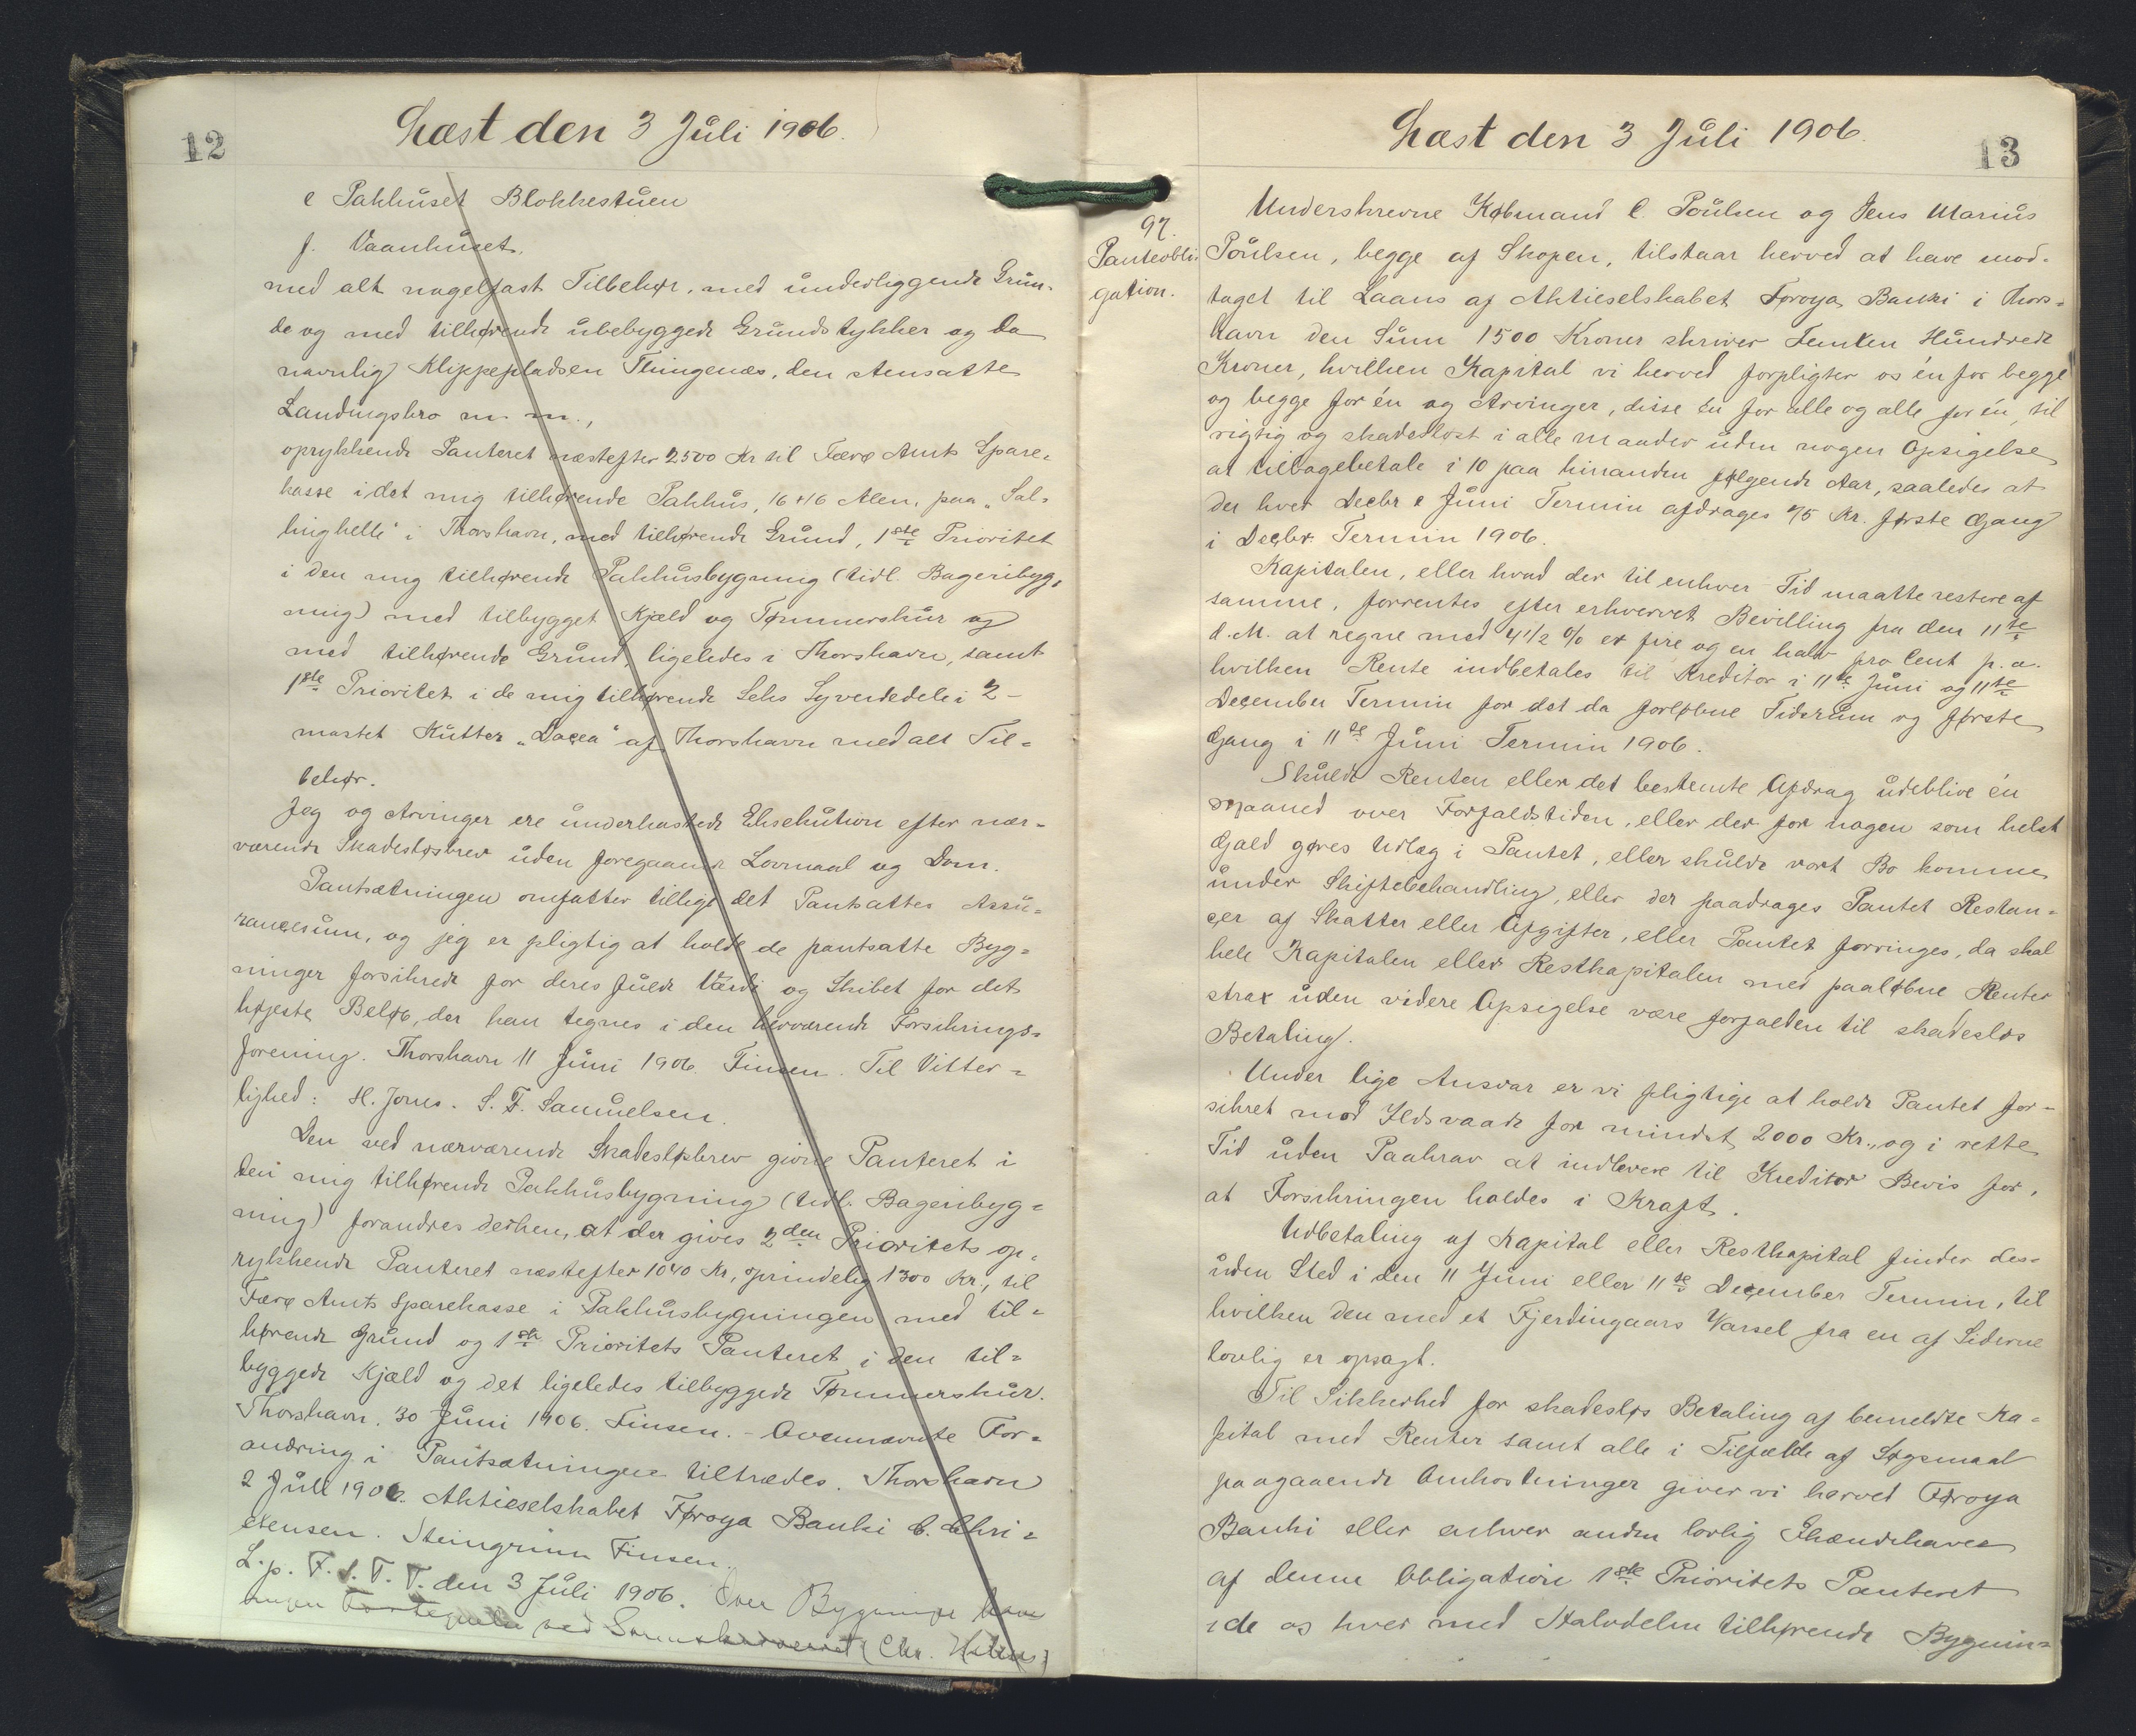 12
Læst den 3 Juli 1906.
e Pakhuset Blokkestuen
f. Vaanhuset,
med alt nagelfast Tilbehør, med underliggende Grun-
de og med tilhørende ubebyggede Grundstykker og da
navnlig Klippepladsen Thingenæs, den stensatte
Landingsbro m. m.,
oprykkende Panteret næstefter 2500 Kr til Færø Amts Spare-
kasse i det mig tilhørende Pakhus, 16 x 16 Alen, paa "Sal-
linghelle" i Thorshavn, med tilhørende Grund, 1ste Prioritet
i den mig tilhørende Pakhusbygning (tidl. Bageribyg-
ning) med tilbygget Kjæld og Tømmerskur og
med tilhørende Grund, ligeledes i Thorshavn, samt
1ste Prioritet i de mig tilhørende Seks Syvendedele i 2-
mastet Kutter "Dacea" af Thorshavn med alt Til-
behør.
Jeg og Arvinger ere underkastede Eksekution efter nær-
værende Skadesløsbrev uden foregaaende Lovmaal og Dom.
Pantsætningen omfatter tillige det Pantsattes Assu-
rancesum, og jeg er pligtig at holde de pantsatte Byg-
ninger forsikrede for deres fulde Værdi og Skibet for det
højeste Beløb, der kan tegnes i den herværende Forsikrings-
forening. Thorshavn 11 Juni 1906. Finsen. Til Vitter-
lighed: H. Jones. S. F. Samuelsen.
Den ved nærværende Skadesløsbrev givne Panteret i
den mig tilhørende Pakhusbygning (tidl. Bageribyg-
ning) forandres derhen, at der gives 2den Prioritets op-
rykkende Panteret næstefter 1040 Kr, oprindelig 1300 Kr., til
Færø Amts Sparekasse i Pakhusbygningen med til-
hørende Grund og 1ste Prioritets Panteret i den til-
byggede Kjæld og det ligeledes tilbyggede Tømmerskur.
Thorshavn. 30 Juni 1906. Finsen. - Ovennævnte For-
andring i Pantsætningen tiltrædes. Thorshavn
2 Juli 1906. Aktieselskabet Føroya Banki C. Chri-
stensen. Steingrim Finsen.
L. p. F. S. T. T. den 3 Juli 1906. Over Bygninge have
ingen ved (Chr.
13
Læst den 3 Juli 1906.
97.
Panteobli-
gation.
Underskrevne Købmand C. Poulsen og Jens Marius
Poulsen, begge af Skopen, tilstaar herved at have mod-
taget til Laans af Aktieselskabet Føroya Banki i Thors-
havn den Sum 1500 Kroner skriver Femten Hundrede
Kroner, hvilken Kapital vi herved forpligter os én for begge
og begge for én og Arvinger, disse én for alle og alle for én, til
rigtig og skadesløst i alle Maader uden nogen Opsigelse
at tilbagebetale i 10 paa hinanden følgende Aar, saaledes at
der hver Decbr & Juni Termin afdrages 75 Kr. første Gang
i Decbr. Termin 1906.
Kapitalen, eller hvad der til enhver Tid maatte restere af
samme, forrentes efter erhvervet Bevilling fra den 11te
d. M. at regne med 4 1/2 % er fire og en halv pro Cent p. a.
hvilken Rente indbetales til Kreditor i 11te Juni og 11te
December Termin for det da forløbne Tidsrum og første
Gang i 11te Juni Termin 1906.
Skulde Renten eller det bestemte Afdrag udeblive én
Maaned over Forfaldstiden, eller der for nogen som helst
Gæld gøres Udlæg i Pantet, eller skulde vort Bo komme
under Skiftebehandling, eller der paadrages Pantet Restan-
cer af Skatter eller Afgifter, eller Pantet forringes, da skal
hele Kapitalen eller Restkapitalen med paaløbne Renter
strax uden videre Opsigelse være forfalden til skadesløs
Betaling.
Under lige Ansvar er vi pligtige at holde Pantet for-
sikret mod Ildsvaade for mindst 2000 Kr., og i rette
Tid uden Paakrav at indlevere til Kreditor Bevis for,
at Forsikringen holdes i Kraft.
Udbetaling af Kapital eller Restkapital finder des-
uden Sted i den 11 Juni eller 11te December Termin, til
hvilken den med et Fjerdingaars Varsel fra en af Siderne
lovlig er opsagt.
Til Sikkerhed for skadesløs Betaling af bemeldte Ka-
pital med Renter samt alle i Tilfælde af Søgsmaal
paagaaende Omkostninger giver vi herved Føroya
Banki eller enhver anden lovlig Ihændehaver
af denne Obligation 1ste Prioritets Panteret
i de os hver med Halvdelen tilhørende Bygnin-